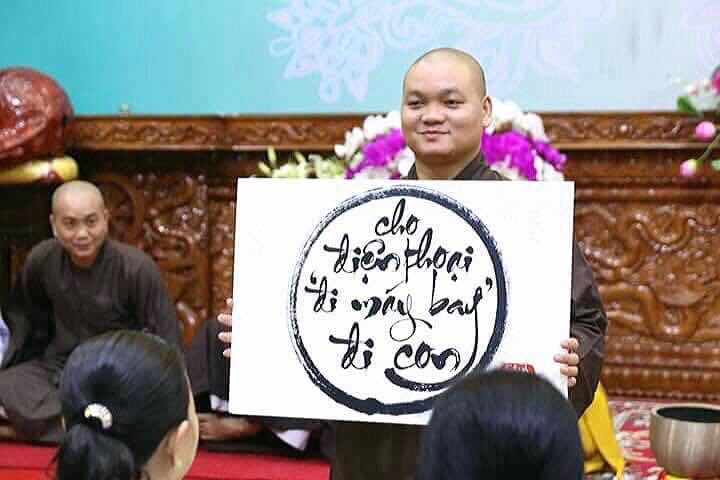 cho
điện thoại
"đi máy bay"
đi con